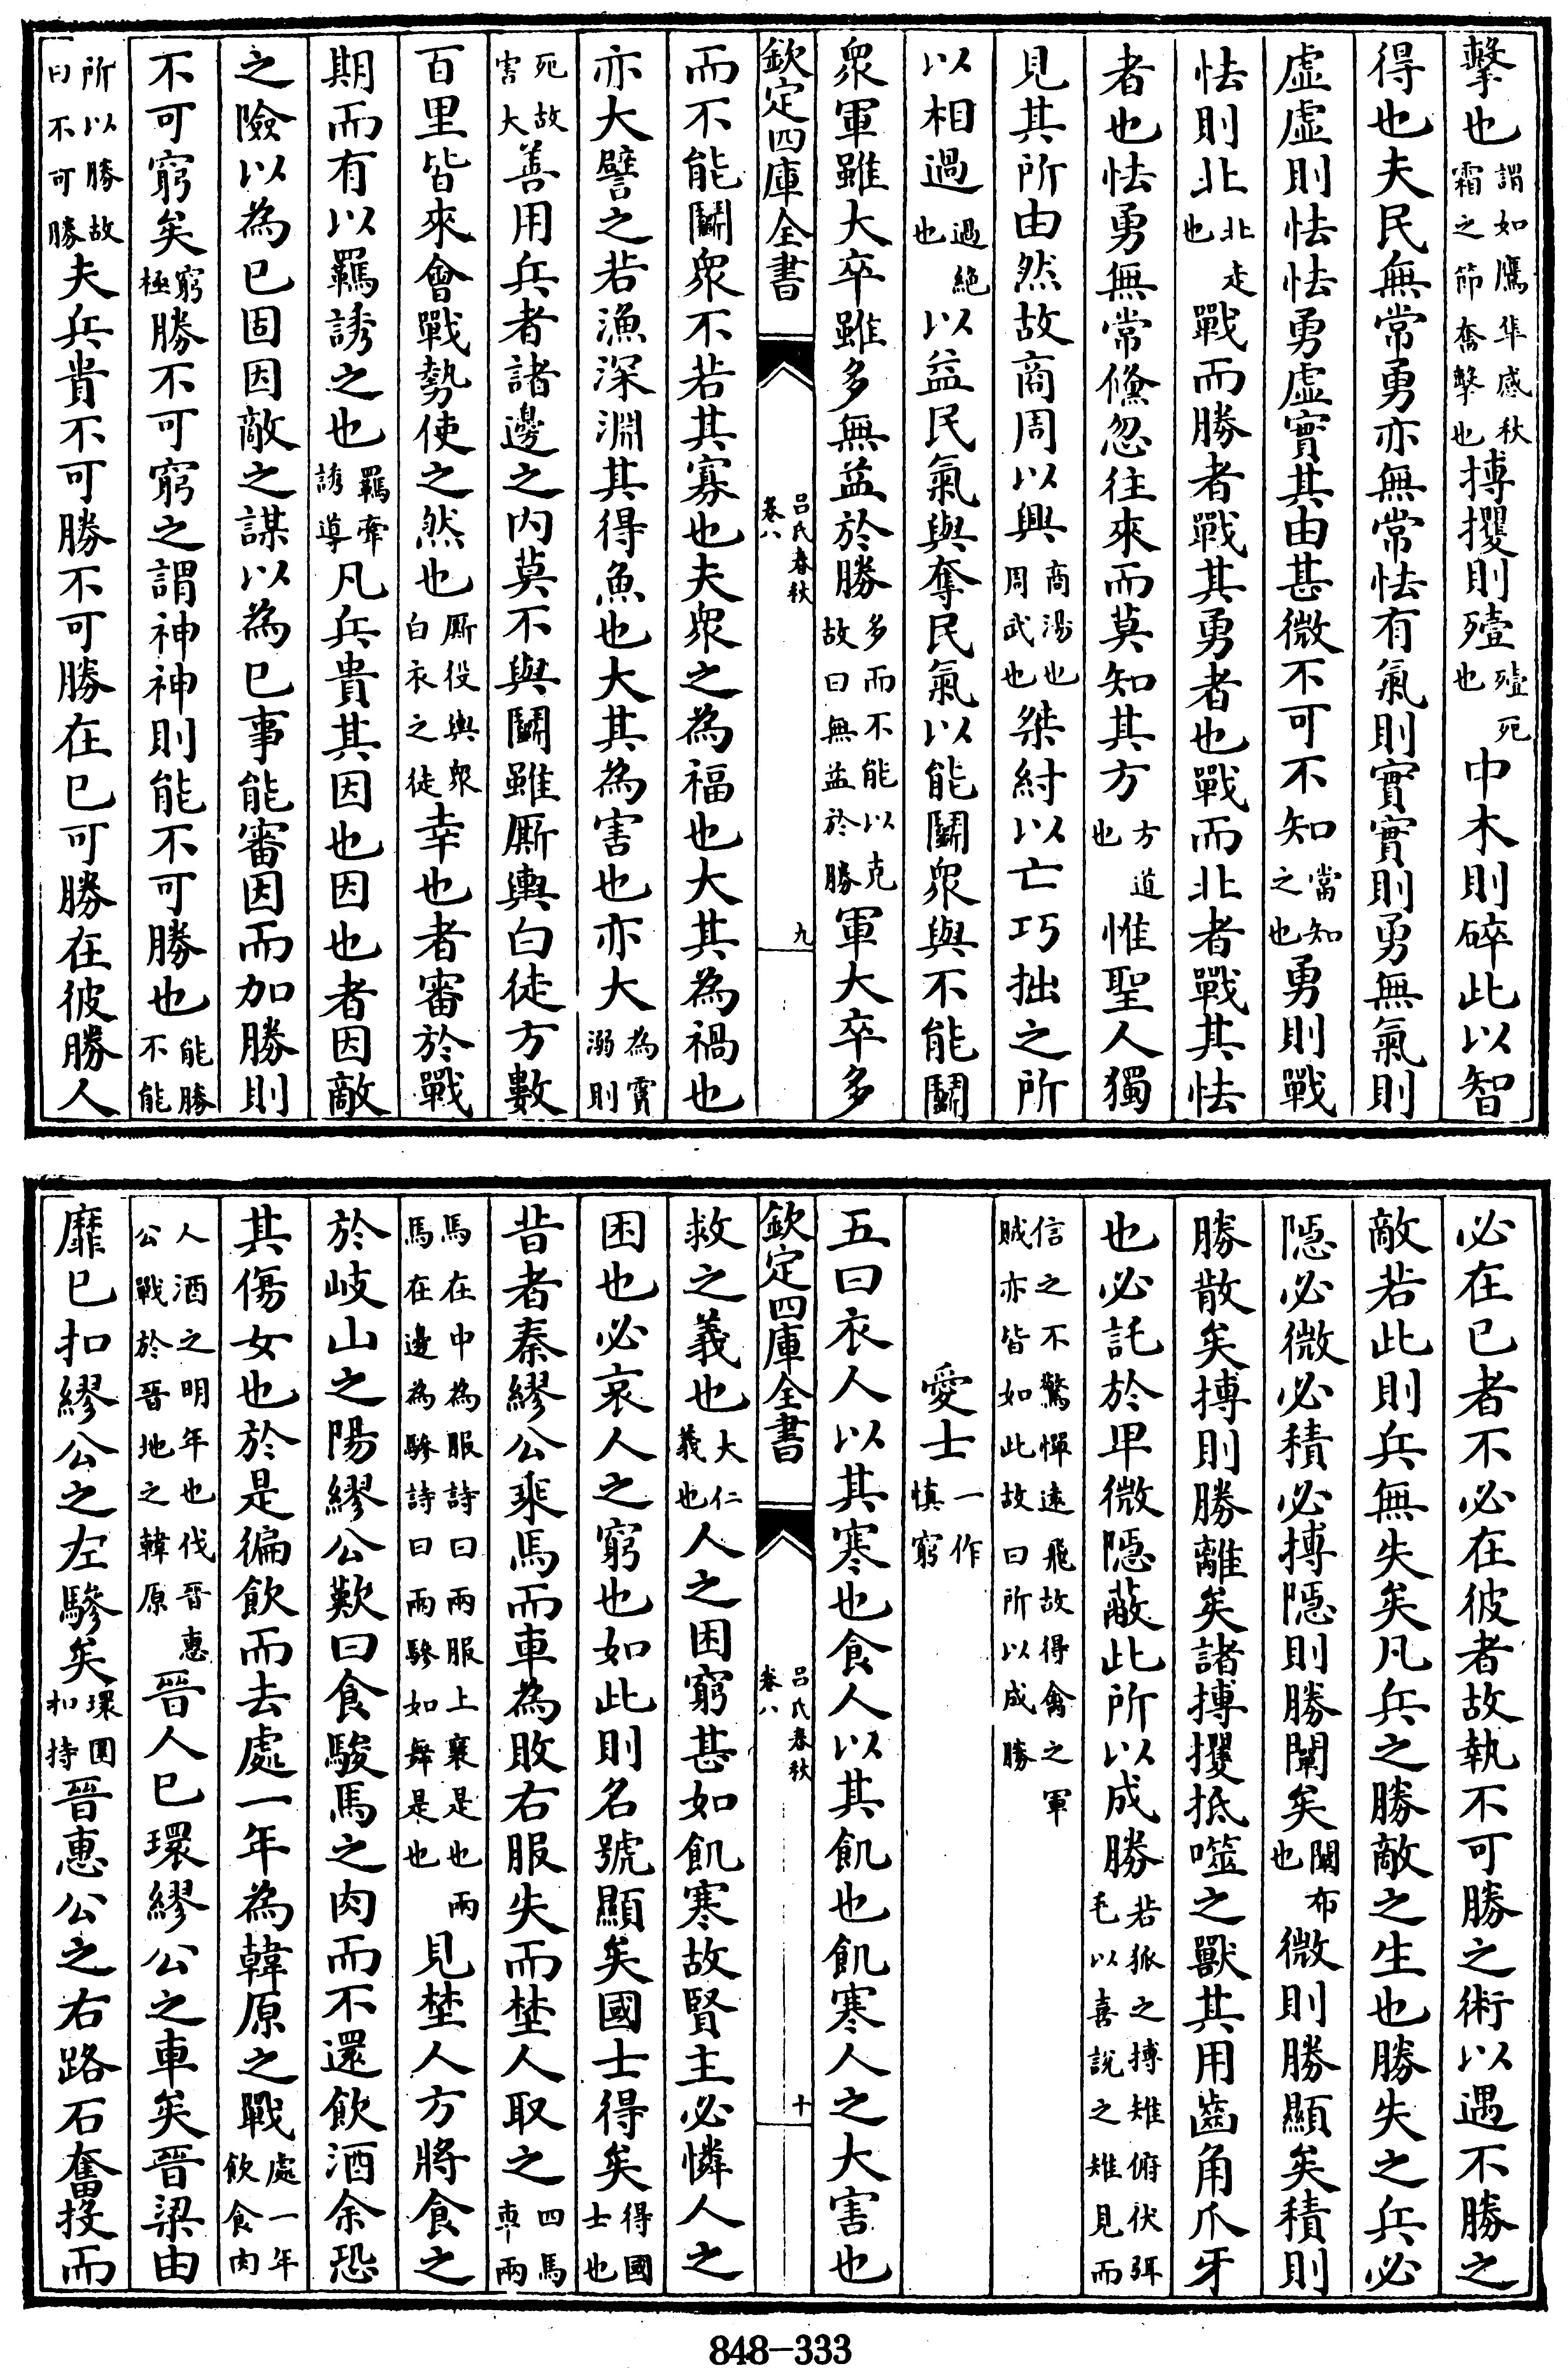 擊也謂如鷹隼感秋霜之節奮擊也搏攫則殪殪死也中木則碎此以智
得也夫民無常勇亦無常怯有氣則實實則勇無氣則
虛虛則怯怯勇虛實其由甚微不可不知當知之也勇則戰
怯則北北走也戰而勝者戰其勇者也戰而北者戰其怯
者也怯勇無常儵忽往來而莫知其方方道也惟聖人獨
見其所由然故商周以興商湯也周武也桀紂以亡巧拙之所
以相過過絕也以益民氣與奪民氣以能鬬衆與不能鬬
衆軍雖大卒雖多無益於勝多而不能以克故曰無益於勝軍大卒多
欽定四庫全書
呂氏春秋卷八
九
而不能鬬衆不若其寡也夫衆之為福也大其為禍也
亦大譬之若漁深淵其得魚也大其為害也亦大為實溺則
死故害大善用兵者諸邊之內莫不與鬬雖厮輿白徒方數
百里皆來會戰勢使之然也厮役輿衆白衣之徒幸也者審於戰
期而有以羈誘之也羈牽誘導凡兵貴其因也因也者因敵
之險以為已固因敵之謀以為已事能審因而加勝則
不可窮矣窮極勝不可窮之謂神神則能不可勝也能勝不能
所以勝故曰不可勝夫兵貴不可勝不可勝在已可勝在彼勝人
必在已者不必在彼者故執不可勝之術以遇不勝之
敵若此則兵無失矣凡兵之勝敵之失也勝失之兵必
隱必微必積必搏隱則勝闡矣闡布也微則勝顯矣積則
勝散矣搏則勝離矣諸搏攫抵噬之獸其用齒角爪牙
也必託於卑微隱蔽此所以成勝若狐之搏雉俯伏弭毛以喜說之雉見而
信之不驚憚遠飛故得禽之軍賊亦皆如此故曰所以成勝
愛士一作慎窮
五曰衣人以其寒也食人以其飢也飢寒人之大害也
欽定四庫全書
呂氏春秋卷八
十
救之義也大仁義也人之困窮甚如飢寒故賢主必憐人之
困也必哀人之窮也如此則名號顯矣國士得矣得國士也
昔者秦繆公乘馬而車為敗右服失而埜人取之四馬車兩
馬在中為服詩曰兩服上襄是也兩馬在邊為驂詩曰兩驂如舞是也見埜人方將食之
於岐山之陽繆公歎曰食駿馬之肉而不還飲酒余恐
其傷女也於是徧飲而去處一年為韓原之戰處一年飲食肉
人酒之明年也伐晉惠公戰於晉地之韓原晉人已環繆公之車矣晉梁由
靡已扣繆公之左驂矣環圍扣持晉惠公之右路石奮投而
848-333